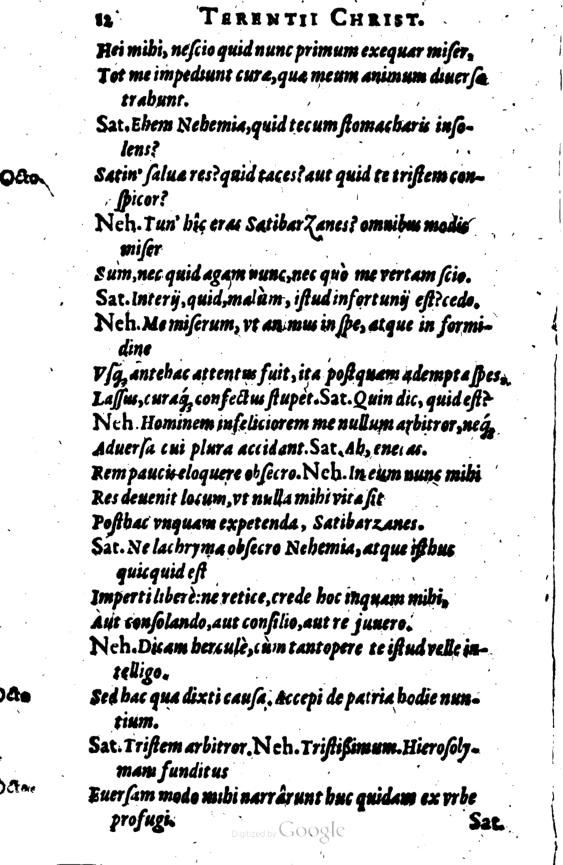 12 TERENTII CHRIST.
Hei mihi, nescio quid nunc primum exequar miser,
Tot me impediunt curæ, quæ meum animum diuersæ
trahunt.
Sat. Ehem Nehemia, quid tecum stomacharis inso-
lens?
Octo Satin' saluæ res? quid taces? aut quid te tristem con-
spicor?
Neh. Tun' hîc eras Satibarzanes? omnibus modis
miser
Sum, nec quid agam nunc, nec quò me vertam scio.
Sat. Interij, quid, malùm, istud infortunij est? cedo.
Neh. Me miserum, vt animus in spe, atque in formi-
dine
Vsq; antehac attentus fuit, ita postquam adempta spes,
Lassus, curaq; confectus stupet. Sat. Quin dic, quid est?
Neh. Hominem infeliciorem me nullum arbitror, neq;
Aduersa cui plura accidant. Sat. Ah, enecas.
Rem paucis eloquere obsecro. Neh. In eum nunc mihi
Res deuenit locum, vt nulla mihi vita sit
Posthac vnquam expetenda, Satibarzanes.
Sat. Ne lachryma obsecro Nehemia, atque istbuc
quicquid est
Imperti liberè: ne retice, crede hoc inquam mihi,
Aut consolando, aut consilio, aut re juuero.
Neh. Dicam herculè, cùm tantopere te istud velle in-
telligo.
Sed hac qua dixti causa. Accepi de patria hodie nun-
tium.
Sat. Tristem arbitror. Neh. Tristißimum. Hierosoly-
mam funditus
Euersam modo mihi narrârunt huc quidam ex vrbe
profugi. Sat.
Digitized by Google